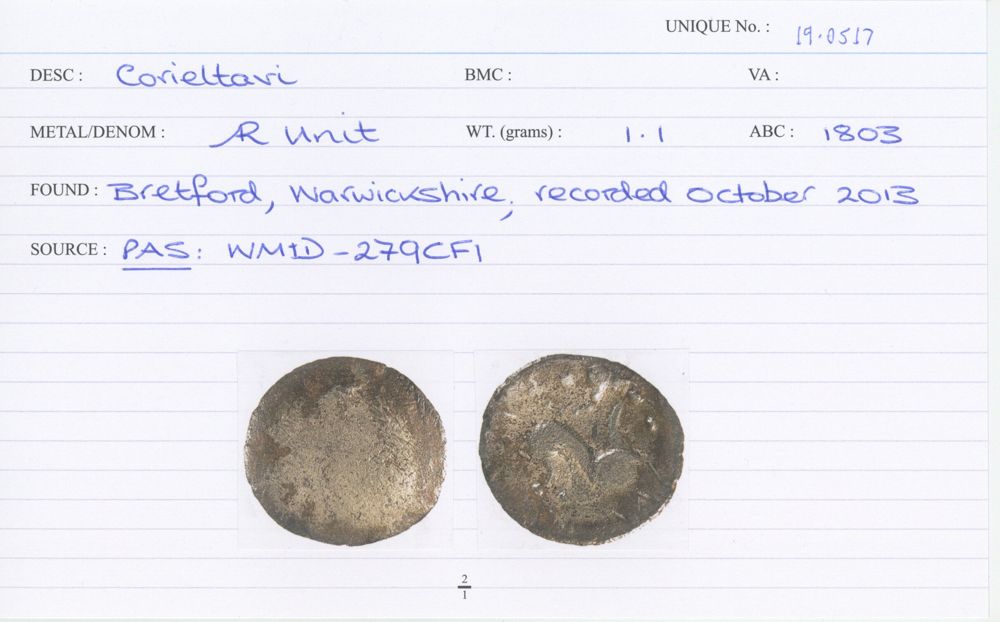 UNIQUE No. : 19.0517
DESC : Corieltavi BMC : VA :
METAL/DENOM : AR Unit WT. (grams) : 1.1 ABC : 1803
FOUND : Bretford, Warwickshire, recorded October 2013
SOURCE : PAS: WMID-279CF1
2
1